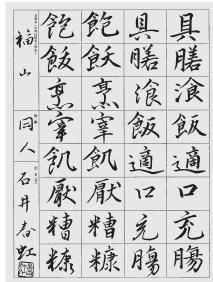 具膳湌飯適口充腸
具膳湌飯適口充腸
飽飫烹宰飢厭糟糠
飽飫烹宰飢厭糟糠
福山 同人 石井春虹